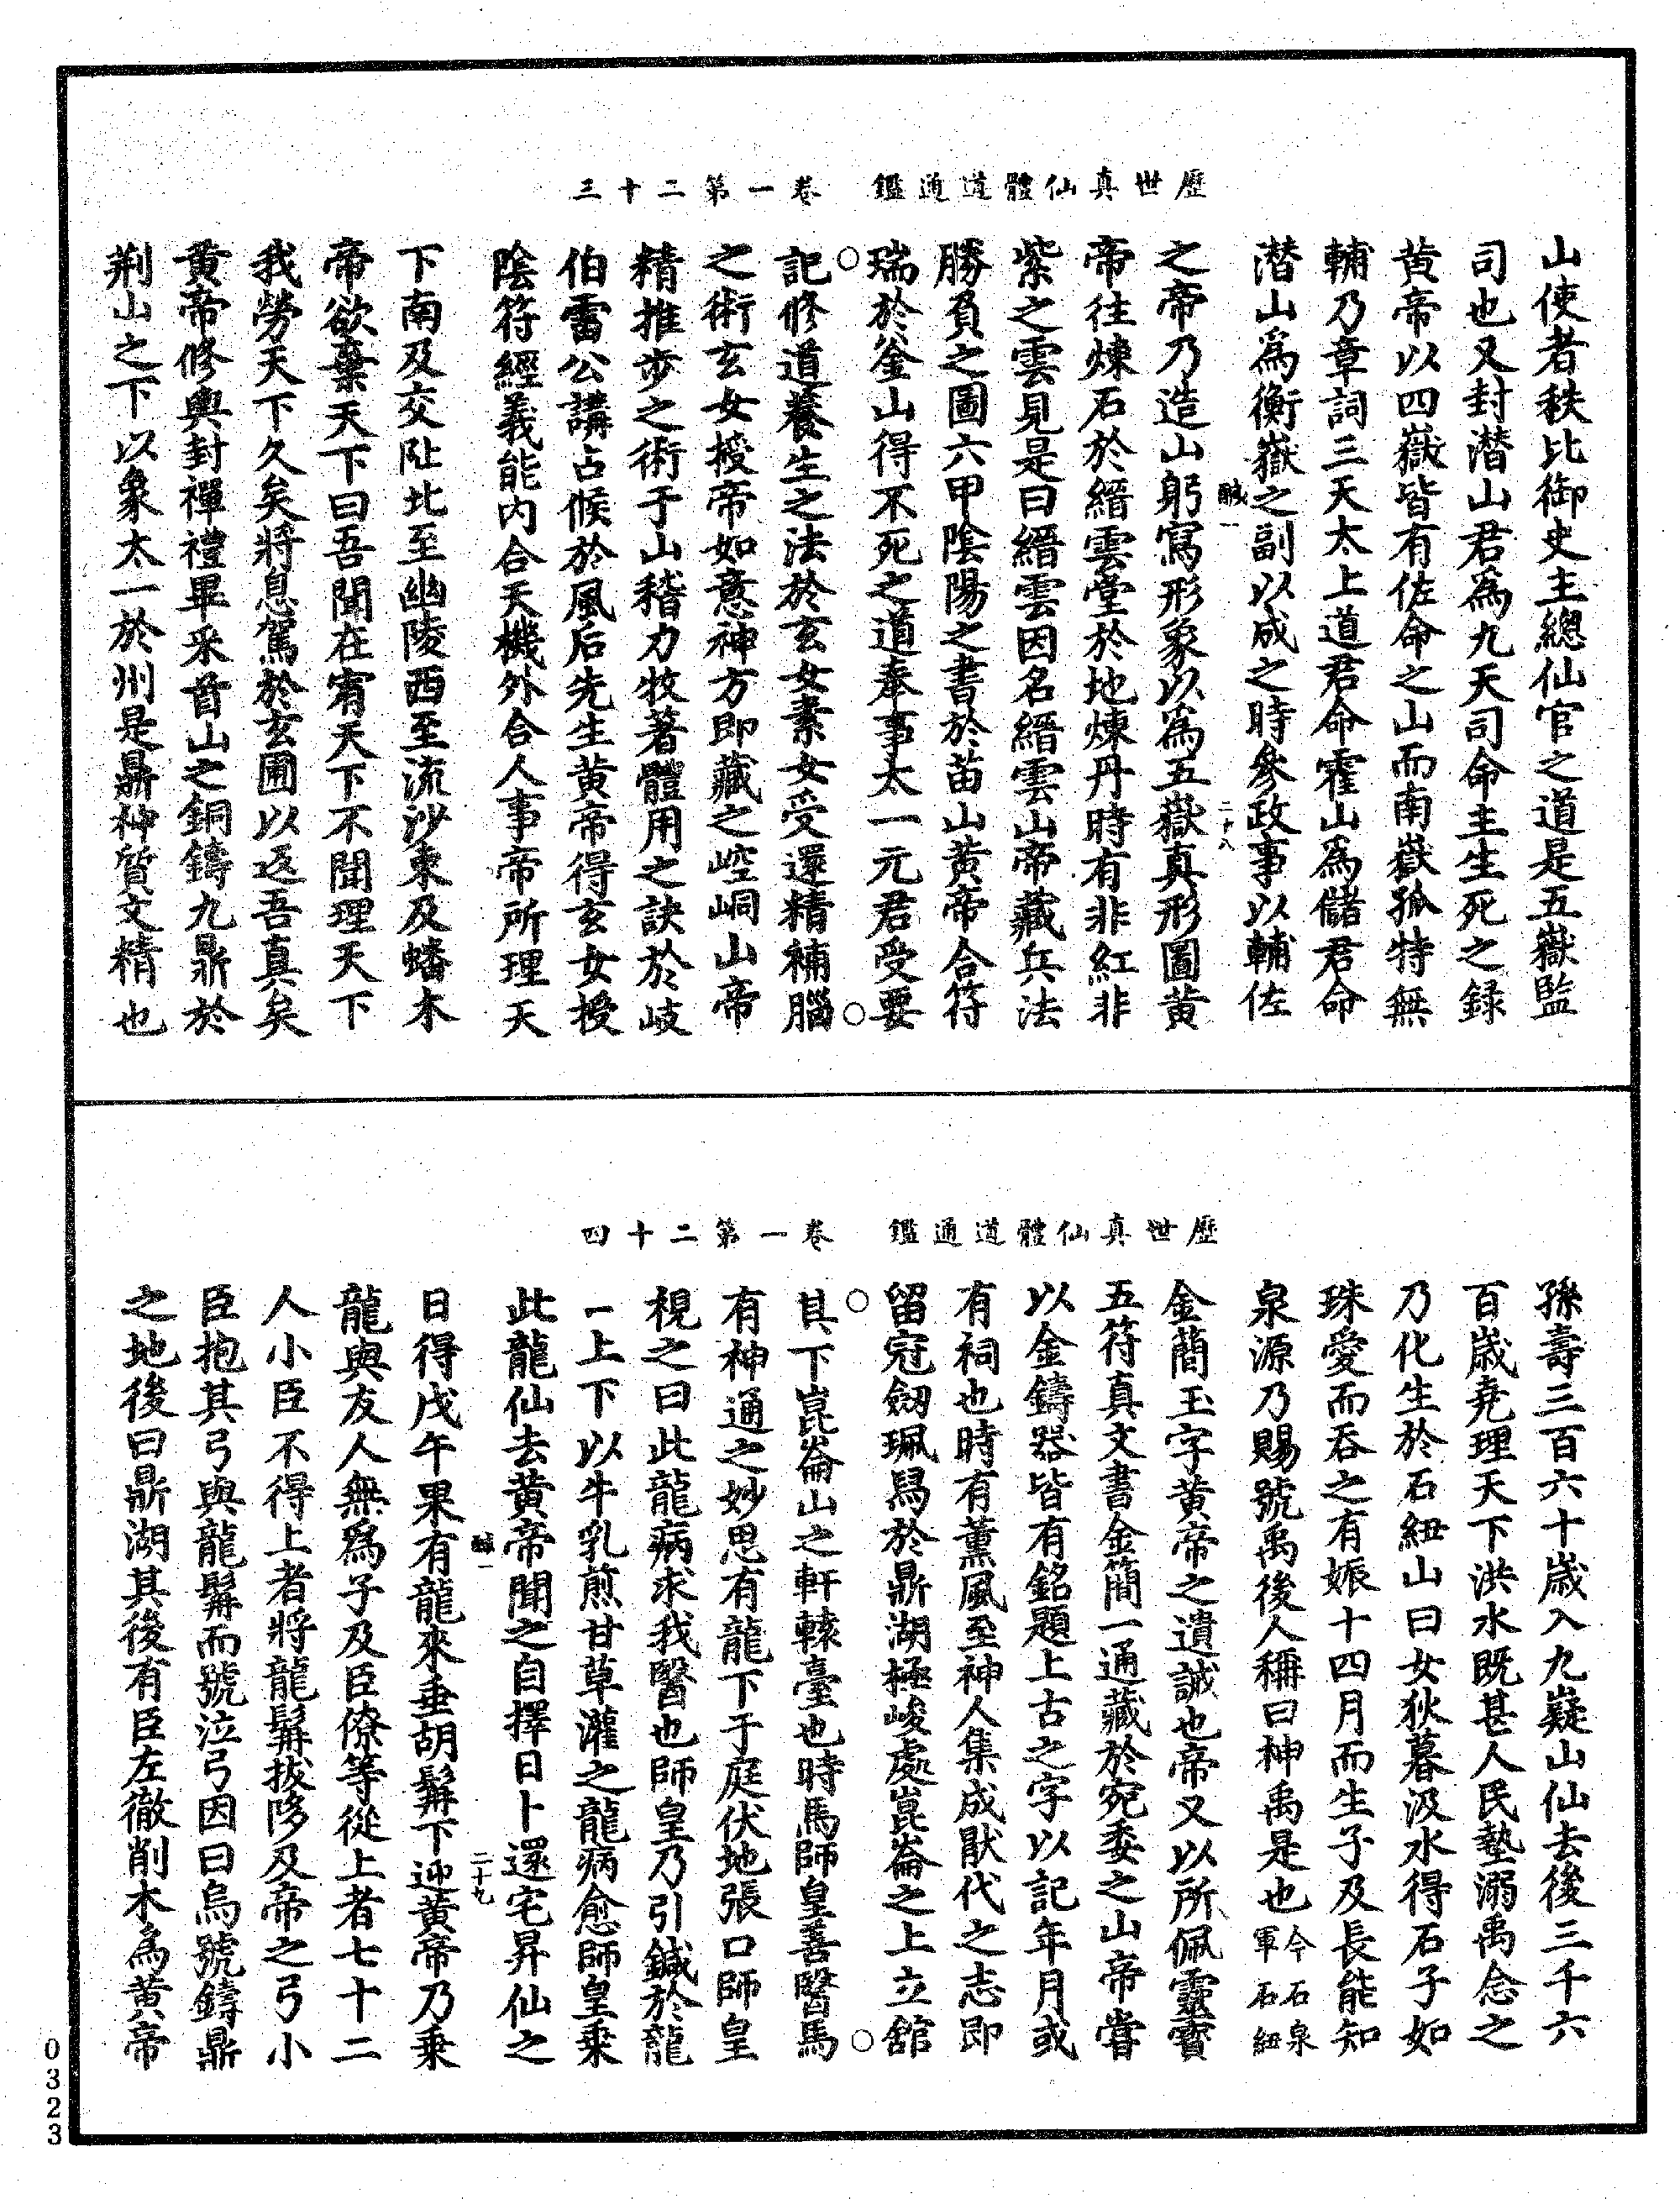 歷世真仙體道通鑑　卷一第二十三
山使者秩比御史主總仙官之道是五嶽監
司也又封潛山君為九天司命主生死之録
黃帝以四嶽皆有佐命之山而南嶽孤特無
輔乃章詞三天太上道君命霍山為儲君命
潛山為衡嶽之副以成之時參政事以輔佐
鹹一　二十八
之帝乃造山躬寫形象以為五嶽真形圖黃
帝往煉石於縉雲堂於地煉丹時有非紅非
紫之雲見是曰縉雲因名縉雲山帝藏兵法
勝負之圖六甲陰陽之書於苗山黃帝合符
瑞於釜山得不死之道奉事太一元君受要
○　○
記修道養生之法於玄女素女受還精補腦
之術玄女授帝如意神方即藏之崆峒山帝
精推步之術于山稽力牧著體用之訣於岐
伯雷公講占候於風后先生黃帝得玄女授
陰符經義能內合天機外合人事帝所理天
下南及交阯北至幽陵西至流沙東及蟠木
帝欲棄天下曰吾聞在宥天下不聞理天下
我勞天下久矣將息駕於玄圃以返吾真矣
黃帝修輿封禪禮畢采首山之銅鑄九鼎於
荆山之下以象太一於州是鼎神質文精也
歷世真仙體道通鑑　卷一第二十四
孫壽三百六十歲入九嶷山仙去後三千六
百歲堯理天下洪水既甚人民墊溺禹念之
乃化生於石紐山曰女狄暮汲水得石子如
珠愛而吞之有娠十四月而生子及長能知
泉源乃賜號禹後人稱曰神禹是也今石泉軍石紐
金蕳玉字黃帝之遺誡也帝又以所佩靈寶
五符真文書金簡一通藏於宛委之山帝嘗
以金鑄器皆有銘題上古之字以記年月或
有祠也時有薰風至神人集成猒代之志即
留冠劔珮舄於鼎湖極峻處崑崙之上立舘
○　○
其下崑崙山之軒轅臺也時馬師皇善醫馬
有神通之妙思有龍下于庭伏地張口師皇
視之曰此龍病求我醫也師皇乃引鍼於龍
一上下以牛乳煎甘草灌之龍病愈師皇乘
此龍仙去黃帝聞之自擇日卜還宅昇仙之
鹹一　二十九
日得戊午果有龍來垂胡髯下迎黃帝乃乘
龍與友人無為子及臣僚等從上者七十二
人小臣不得上者將龍髯拔陊及帝之弓小
臣抱其弓與龍髯而號泣弓因曰烏號鑄鼎
之地後曰鼎湖其後有臣左徹削木為黃帝
0323